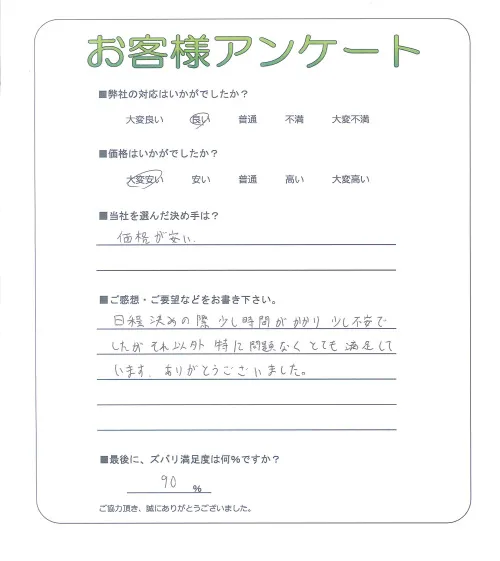 お客様アンケート
■弊社の対応はいかがでしたか？
大変良い 良い 普通 不満 大変不満
■価格はいかがでしたか？
大変安い 安い 普通 高い 大変高い
■当社を選んだ決め手は？
価格が安い.
■ご感想・ご要望などをお書き下さい。
日程決めの際少し時間がかかり少し不安で
したがそれ以外特に問題なくとても満足して
います. ありがとうございました。
■最後に、ズバリ満足度は何％ですか？
90 ％
ご協力頂き、誠にありがとうございました。